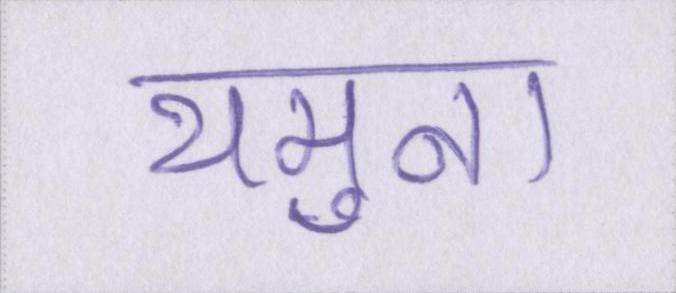 यमुना